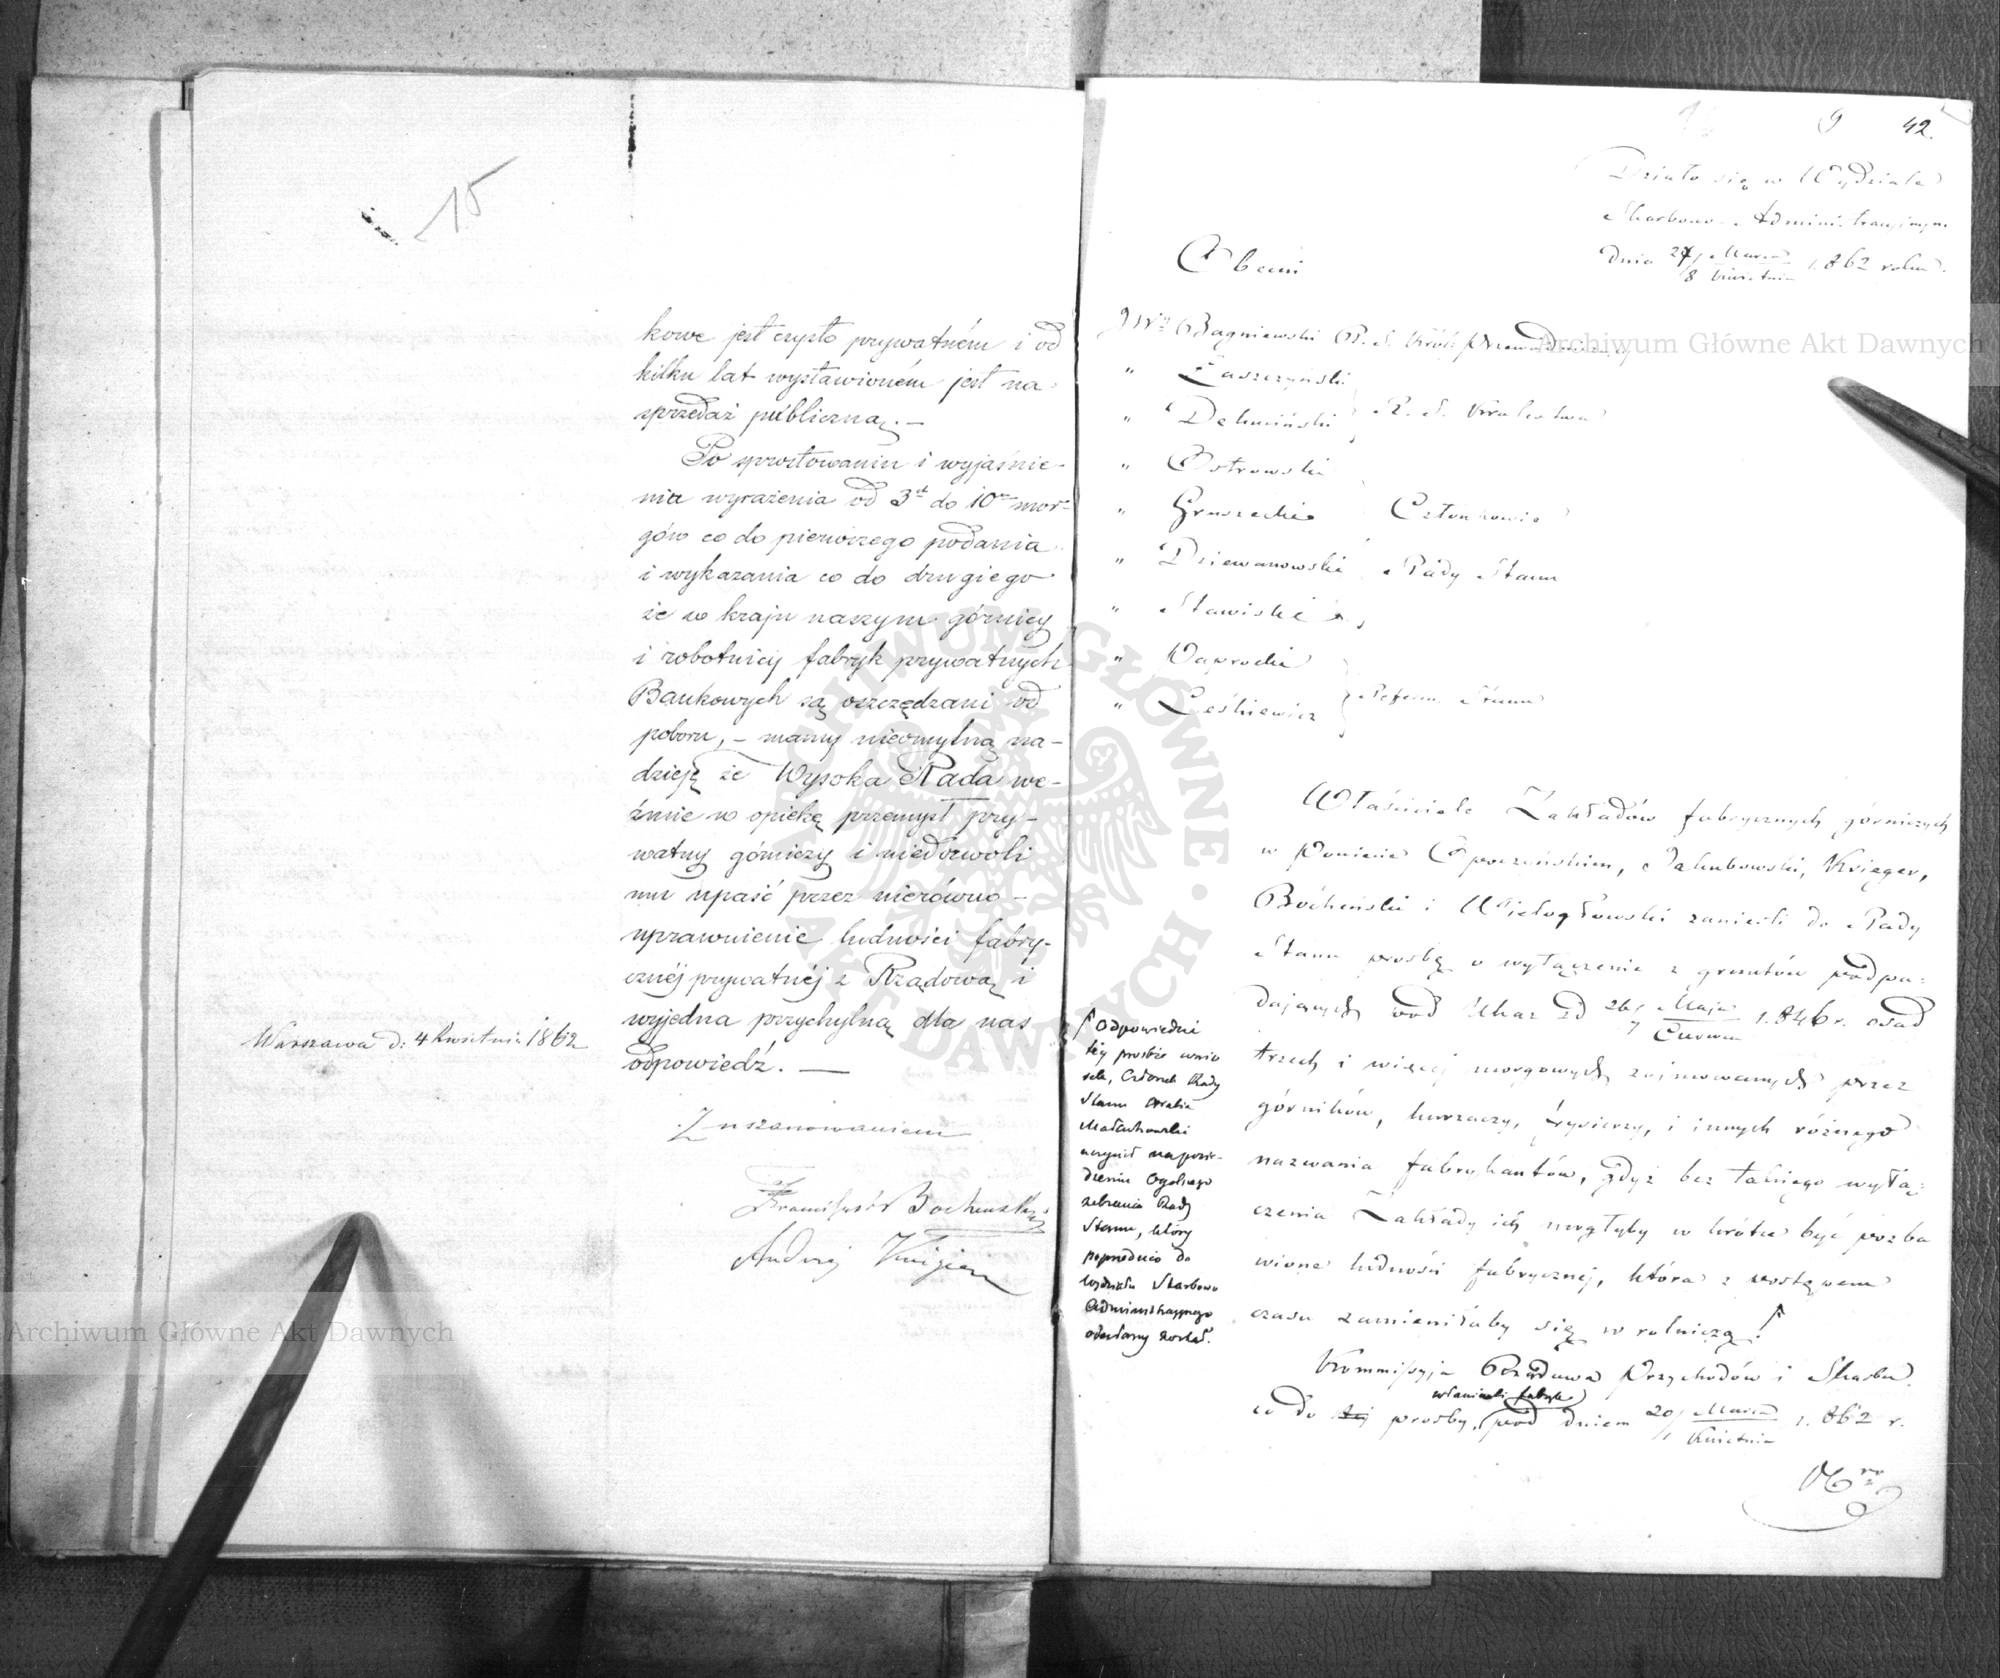 15
kowe jest czysto prywatném i od
kilku lat wystawioném jest na
sprzedaż publiczną. —
Po sprostowaniu i wyjaśnie-
nia wyrażenia od 3ch do 10u mor-
gów co do pierwszego podania
i wykazania co do drugiego
że w kraju naszym górnicy
i robotnicy fabryk prywatnych
Bankowych są oszczędzani od
poboru, – mamy nieomylną na-
dzieję że Wysoka Rada we-
źmie w opiekę przemysł pry-
watny górniczy i niedozwoli
mu upaść przez nierówno-
uprawnienie ludności fabry-
cznéj prywatnéj z Rządową i
wyjedna przychylną dla nas
odpowiedź. —
Warszawa d: 4 Kwietnia 1862
Z uszanowaniem
Franciszek Bocheński
Andrzej Krüger
9 42.
Działo się w Wydziale
Skarbowo-Administracyjnym
dnia 27/8 Marca/Kwietnia 1862 roku.
Obecni
JW. Bagniewski R. S. Król: Przewodniczący
" Łaszczyński
" Dębiński R. S. Królestwa
" Ostrowski
" Gruszecki Członkowie
" Dziewanowski Rady Stanu
" Stawiski
" Paprocki
" Leśkiewicz Referen. Stanu
Właściciele Zakładów fabrycznych górniczych
w Powiecie Opoczyńskim, Jakubowski, Krieger,
Bocheński i Wielogłowski zanieśli do Rady
Stanu prośbę o wyłączenie z gruntów podpa-
dających pod Ukaz z d 26/7 Maja/Czerwca 1846 r. osad
trzech i więcej morgowych zajmowanych przez
górników, kurzaczy, fryszerzy, i innych różnego
nazwania fabrykantów, gdyż bez takiego wyłą-
czenia Zakłady ich mogłyby w krótce być pozba
wione ludności fabrycznej, która z postępem
czasu zamieniłaby się w rolniczą.
Odpowiedni
téj prośbie wnio
sek, Członek Rady
Stanu Hrabia
Małachowski
uczynił na posie-
dzeniu Ogólnego
zebrania Rady
Stanu, który
poprzednio do
Wydziału Skarbowo
Administracyjnego
odesłany został.
Kommissyja Rządowa Przychodów i Skarbu
właścicieli fabryk
co do tej prośby, pod dniem 20/1 Marca/Kwietnia 1862 r.
Archiwum Główne Akt Dawnych
Archiwum Główne Akt Dawnych
ARCHIWUM GŁÓWNE AKT DAWNYCH